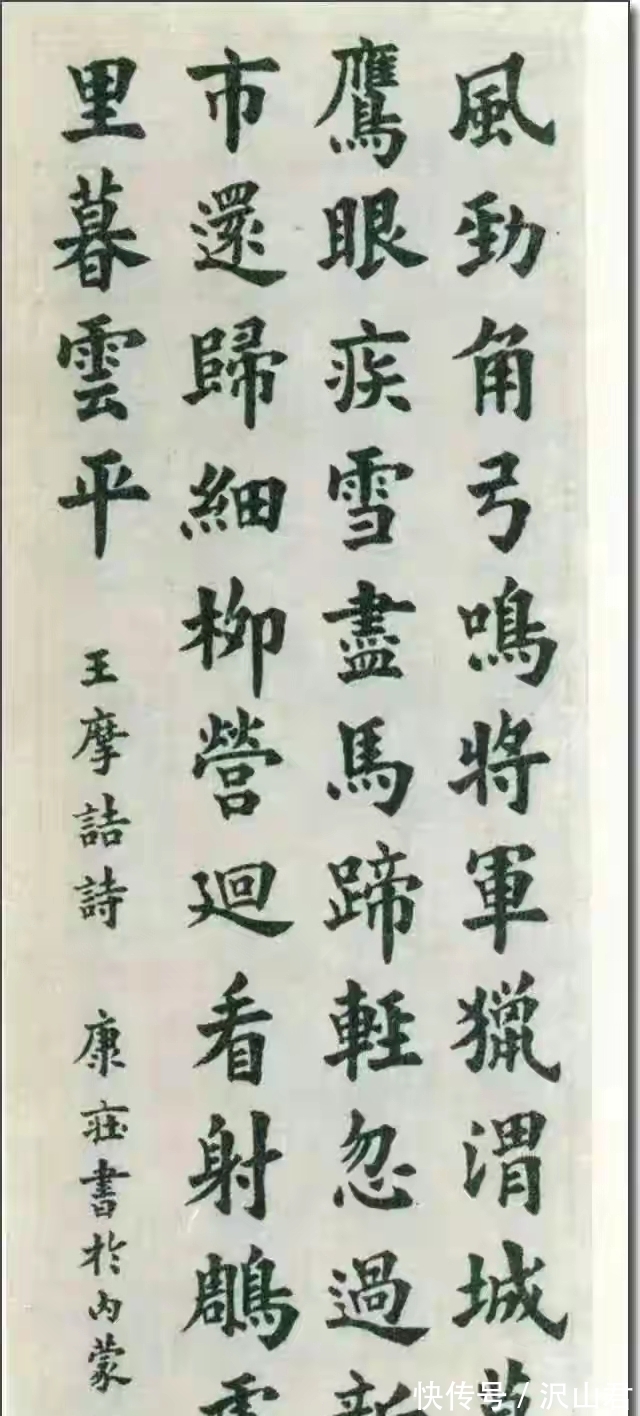 風勁角弓鳴將軍獵渭城
鷹眼疾雪盡馬蹄輕忽過新
市還歸細柳營廻看射鵰
里暮雲平 王摩詰詩 康莊書於内蒙
快传号 / 沢山君